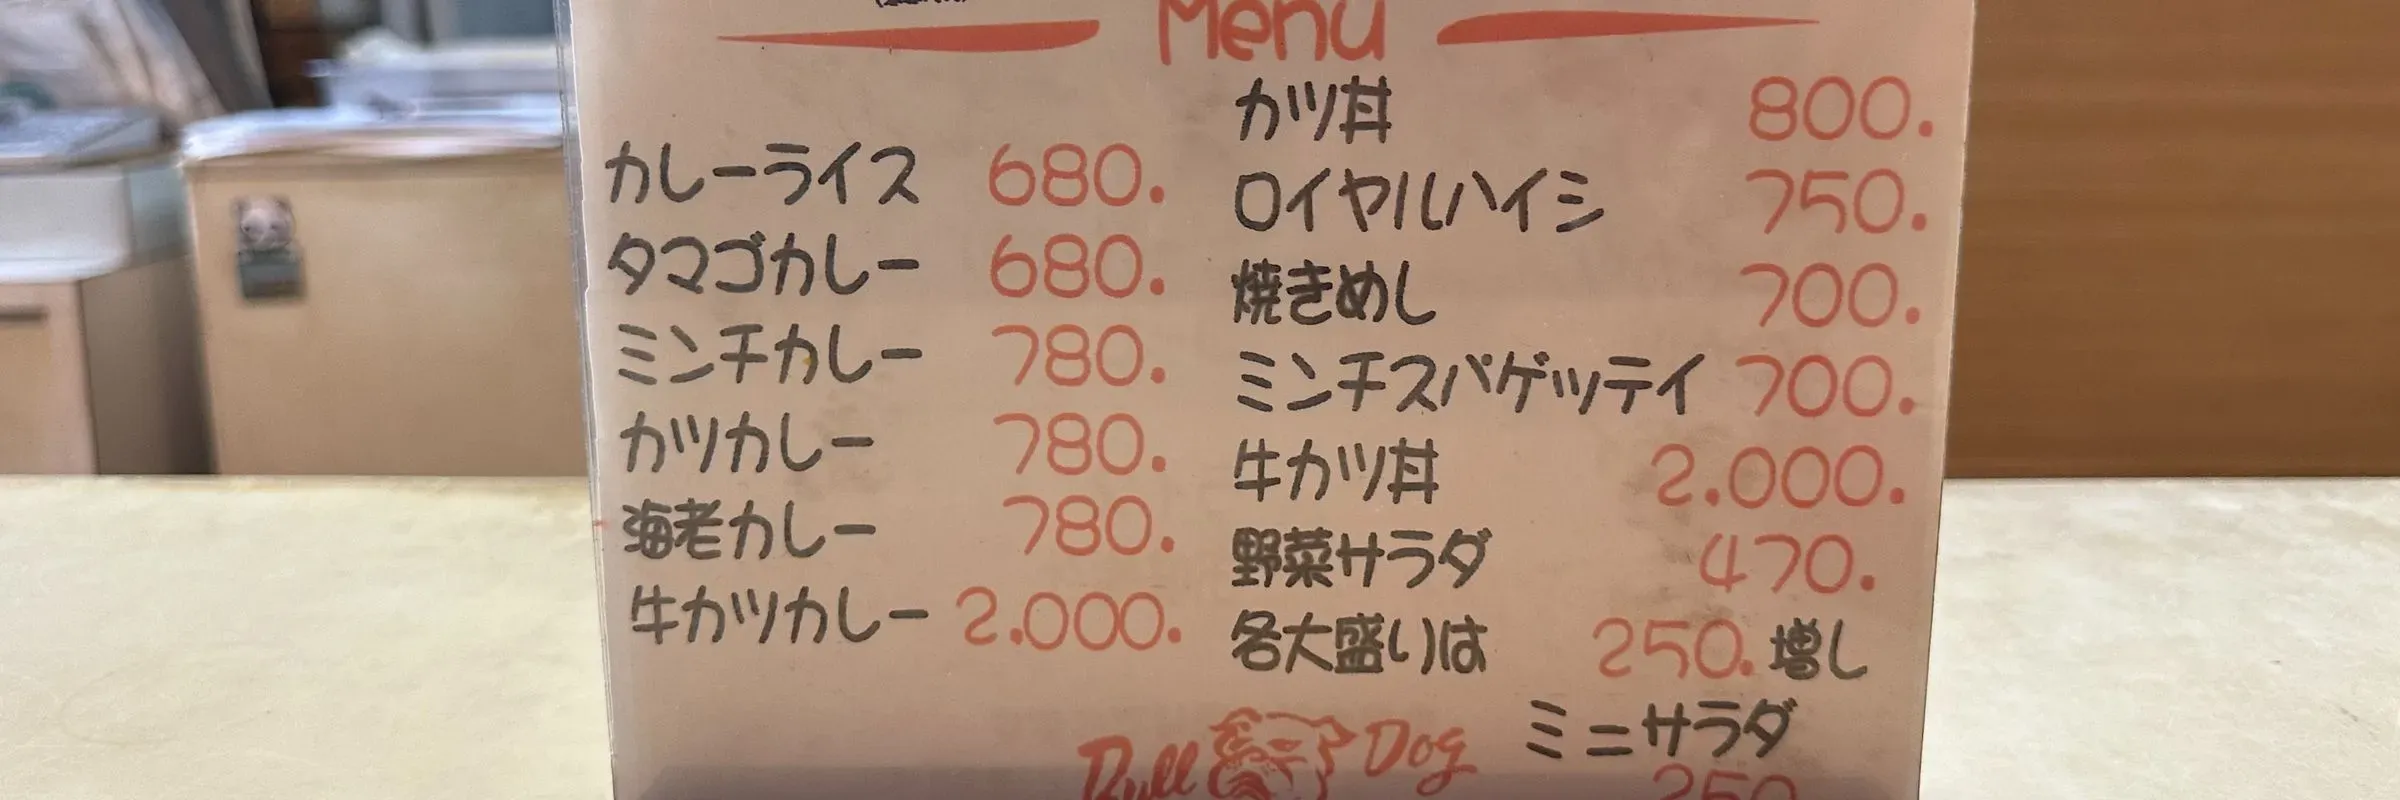 Menu
カレーライス 680.
タマゴカレー 680.
ミンチカレー 780.
カツカレー 780.
海老カレー 780.
牛カツカレー 2.000.
カツ丼 800.
ロイヤルハイシ 750.
焼きめし 700.
ミンチスパゲッティ 700.
牛カツ丼 2.000.
野菜サラダ 470.
各大盛りは 250.増し
ミニサラダ
250
Bull Dog